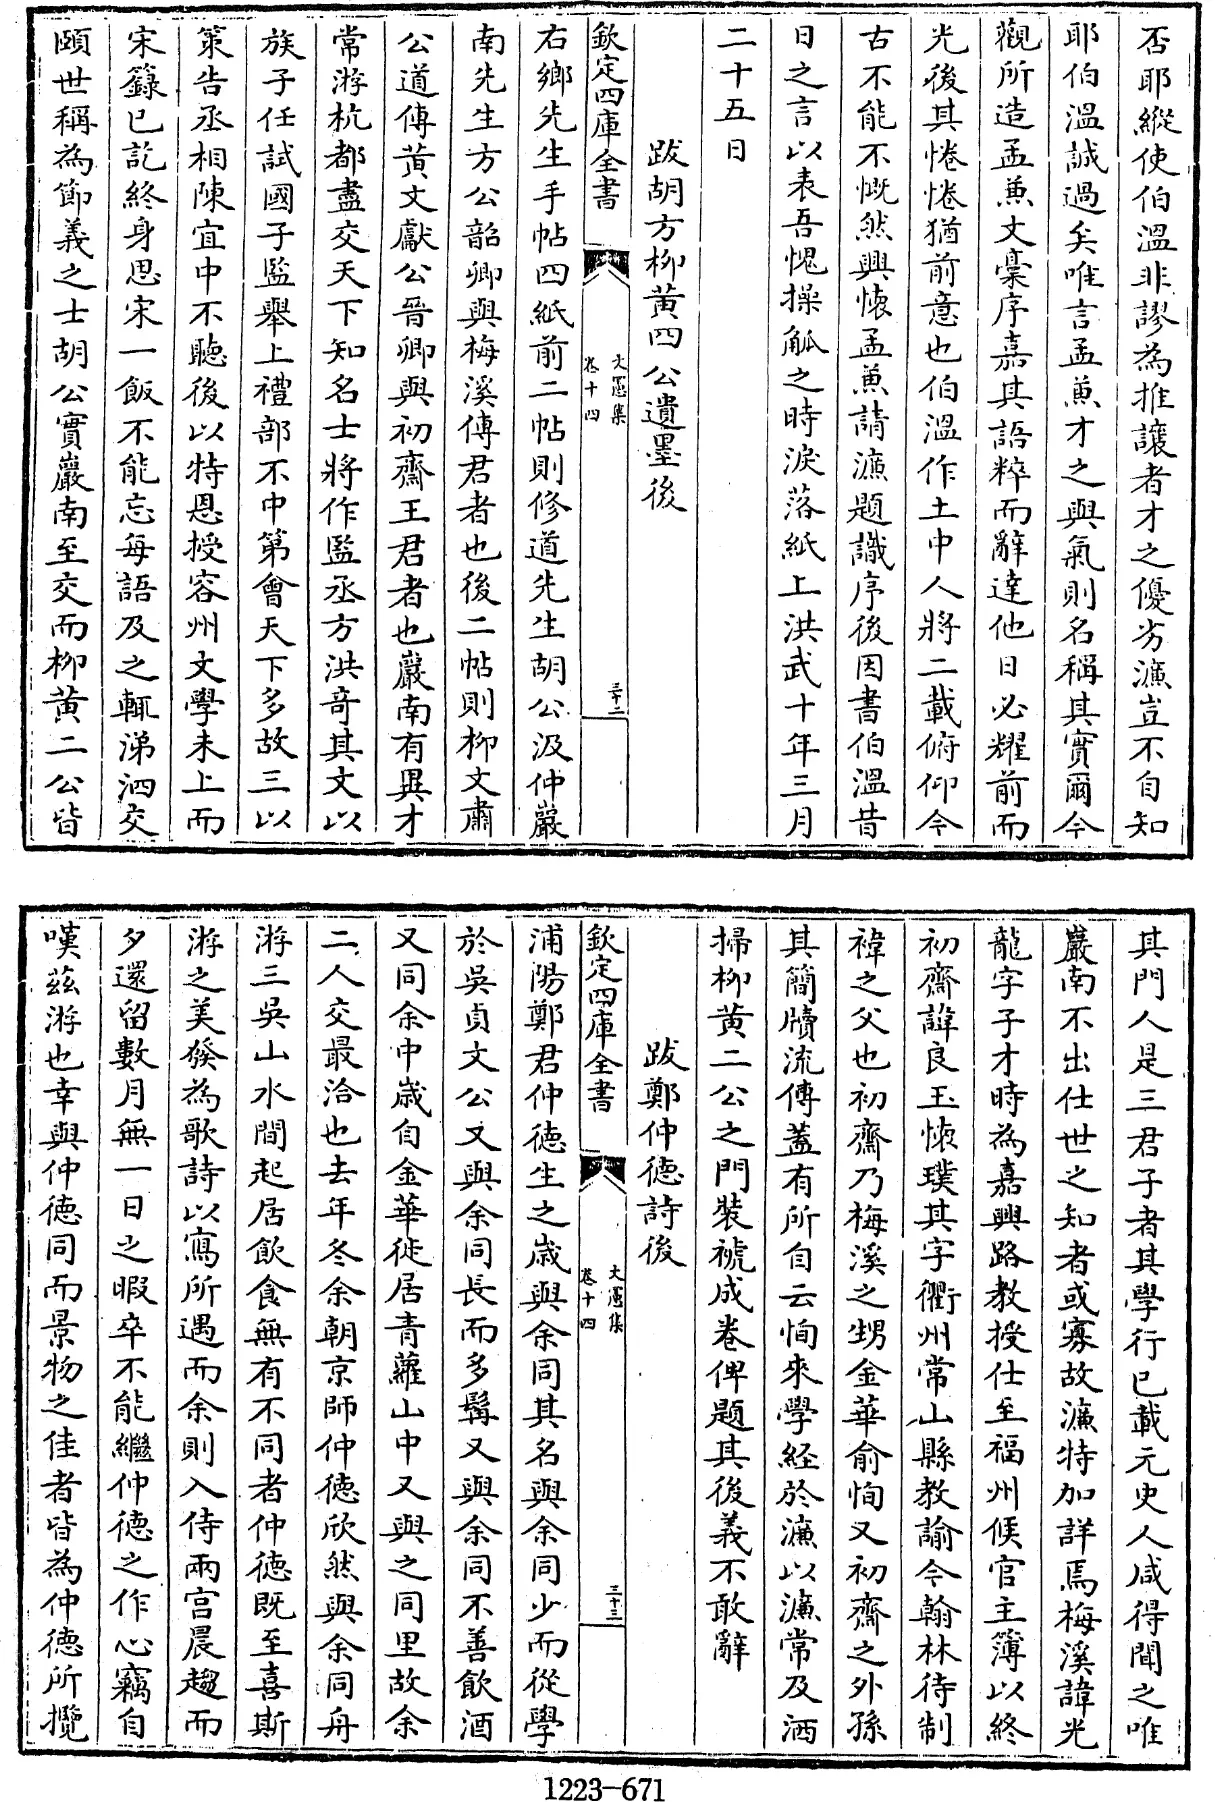 否耶縱使伯溫非謬為推讓者才之優劣濂豈不自知
耶伯溫誠過矣唯言孟兼才之與氣則名稱其實爾今
觀所造孟兼文稾序嘉其語粹而辭達他日必耀前而
光後其惓惓猶前意也伯溫作土中人將二載俯仰今
古不能不慨然興懷孟兼請濂題識序後因書伯溫昔
日之言以表吾愧操觚之時淚落紙上洪武十年三月
二十五日
跋胡方柳黃四公遺墨後
欽定四庫全書
文憲集
卷十四
三十二
右鄉先生手帖四紙前二帖則修道先生胡公汲仲巖
南先生方公韶卿與梅溪傅君者也後二帖則柳文肅
公道傳黃文獻公晉卿與初齋王君者也巖南有異才
常游杭都盡交天下知名士將作監丞方洪奇其文以
族子任試國子監舉上禮部不中第會天下多故三以
策告丞相陳宜中不聽後以特恩授容州文學未上而
宋籙已訖終身思宋一飯不能忘每語及之輒涕泗交
頤世稱為節義之士胡公實巖南至交而柳黃二公皆
其門人是三君子者其學行已載元史人咸得聞之唯
巖南不出仕世之知者或寡故濂特加詳焉梅溪諱光
龍字子才時為嘉興路教授仕至福州候官主簿以終
初齋諱良玉懷璞其字衢州常山縣教諭今翰林待制
禕之父也初齋乃梅溪之甥金華俞恂又初齋之外孫
其簡牘流傳蓋有所自云恂來學經於濂以濂常及洒
掃柳黃二公之門裝褫成卷俾題其後義不敢辭
跋鄭仲德詩後
欽定四庫全書
文憲集
卷十四
三十三
浦陽鄭君仲德生之歲與余同其名與余同少而從學
於吳貞文公又與余同長而多髯又與余同不善飲酒
又同余中歲自金華徙居青蘿山中又與之同里故余
二人交最洽也去年冬余朝京師仲德欣然與余同舟
游三吳山水間起居飲食無有不同者仲德既至喜斯
游之美發為歌詩以寫所遇而余則入侍兩宮晨趨而
夕還留數月無一日之暇卒不能繼仲德之作心竊自
嘆茲游也幸與仲德同而景物之佳者皆為仲德所攬
1223-671